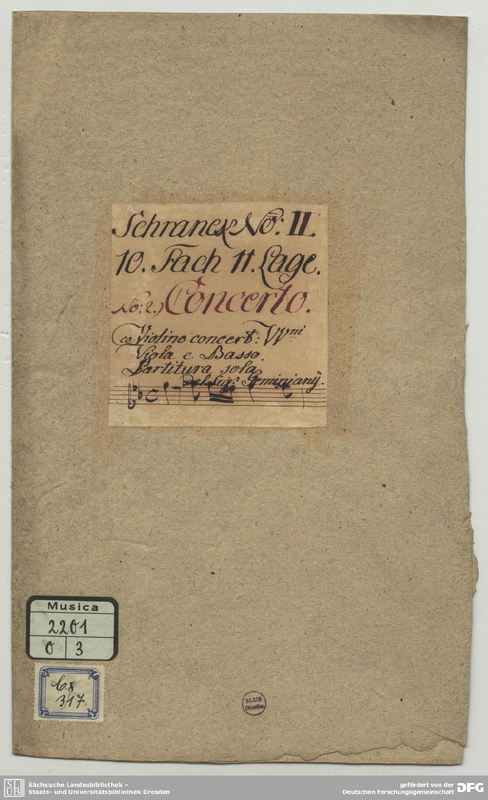 Schranck No: II.
10. Fach 11. Lage.
No: 2.) Concerto.
co Violino concert: VVni
Viola e Basso.
Partitura sola
Del Sigr: Geminianÿ.
Musica
2201
O 3
Cx
317
SLUB
Dresden
Sächsische Landesbibliothek –
Staats- und Universitätsbibliothek Dresden
gefördert von der
Deutschen Forschungsgemeinschaft
DFG